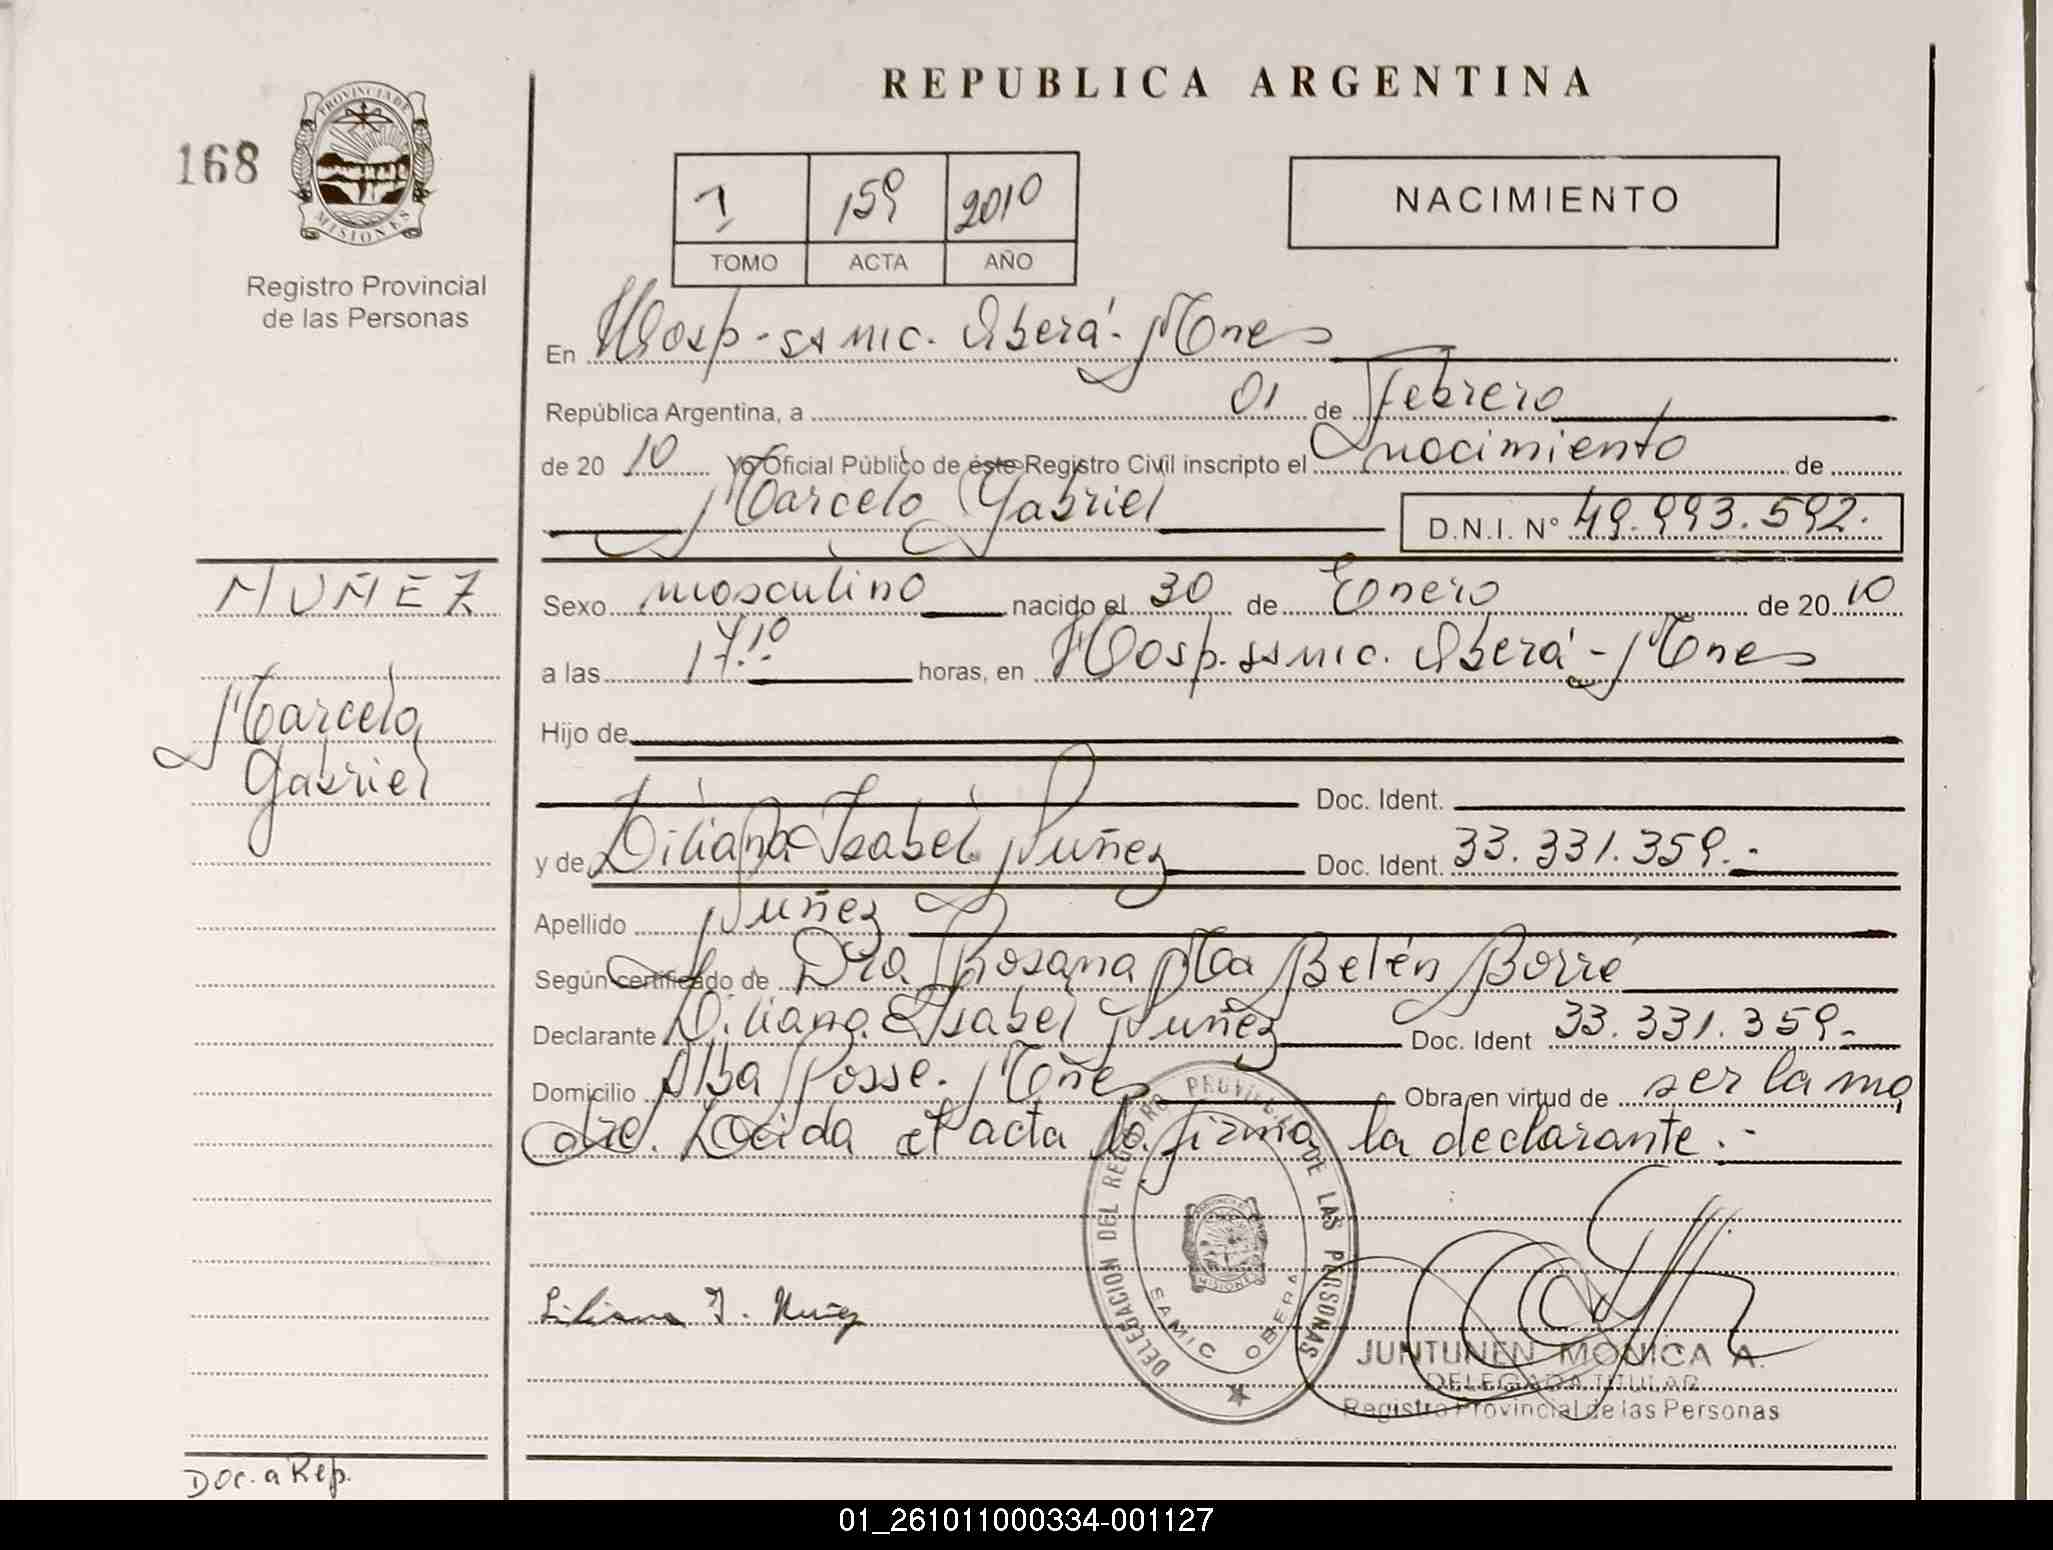 REPUBLICA ARGENTINA
168
PROVINCIA DE
MISIONES
Registro Provincial
de las Personas
1 159 2010
TOMO ACTA AÑO
NACIMIENTO
En Hosp. ssmic. Oberá - Mnes
República Argentina, a 01 de Febrero
de 20 10 Yo Oficial Público de éste Registro Civil inscripto el nacimiento de
Marcelo Gabriel D.N.I. N° 49.993.592.
NUÑEZ
Marcelo
Gabriel
Sexo masculino nacido el 30 de Enero de 20 10
a las 17.10 horas, en Hosp. ssmic. Oberá - Mnes
Hijo de
Doc. Ident.
y de Liliana Isabel Nuñez Doc. Ident. 33.331.359.-
Apellido Nuñez
Según certificado de Dra Rosana Ma Belén Borré
Declarante Liliana Isabel Nuñez Doc. Ident 33.331.359.-
Domicilio Alba Posse. Mñes Obra en virtud de ser la ma
dre. Leida el acta la firma la declarante.-
DELEGACION DEL REGISTRO PROVINCIAL DE LAS PERSONAS
SAMIC OBERA
MISIONES
Liliana I. Nuñez
JUNTUNEN MONICA A.
DELEGADA TITULAR
Registro Provincial de las Personas
Doc. a Rep.
01_261011000334-001127